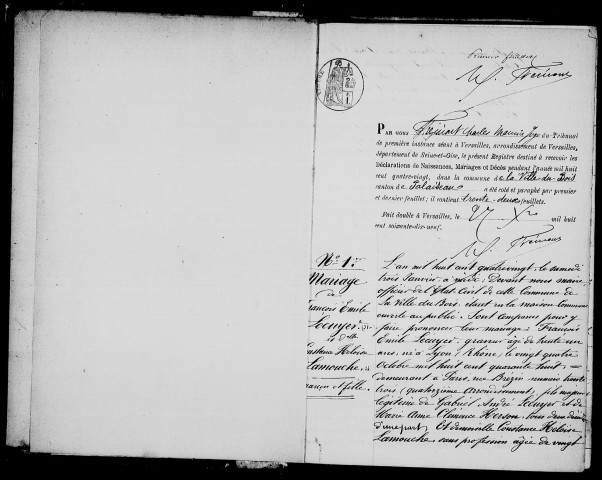 Premier feuillet
PAR NOUS Charles Maurice Juge au Tribunal
de première instance séant à Versailles, arrondissement de Versailles,
département de Seine-et-Oise, le présent Registre destiné à recevoir les
Déclarations de Naissances, Mariages et Décès pendant l'année mil huit
cent quatre-vingt, dans la commune de la Ville-du-Bois
canton de Palaiseau a été coté et paraphé par premier
et dernier feuillet; il contient trente-deux feuillets.
Fait double à Versailles, le 27 Xbre mil huit
cent soixante-dix-neuf.
No 1er
Mariage
de
François Emile
Lecuyer
et Dlle
Constance Héloïse
Lamouche
Garçon et fille
L'an mil huit cent quatre vingt, le samedi
trois Janvier, à midi; Devant nous maire
officier de l'Etat Civil de cette Commune de
La Ville du Bois, étant en la maison Commune
ouverte au public. Sont comparus pour y
faire prononcer leur mariage: François
Emile Lecuyer, graveur âgé de trente un
ans, né à Lyon (Rhône) le vingt quatre
Octobre mil huit cent quarante huit,
demeurant à Paris, rue Brézin numéro trente
trois (quatorzième arrondissement) fils majeur
légitime de Gabriel André Lecuyer et de
Marie Anne Clémence Herson, tous deux
d'une part; Et demoiselle Constance Héloïse
Lamouche, sans profession âgée de vingt